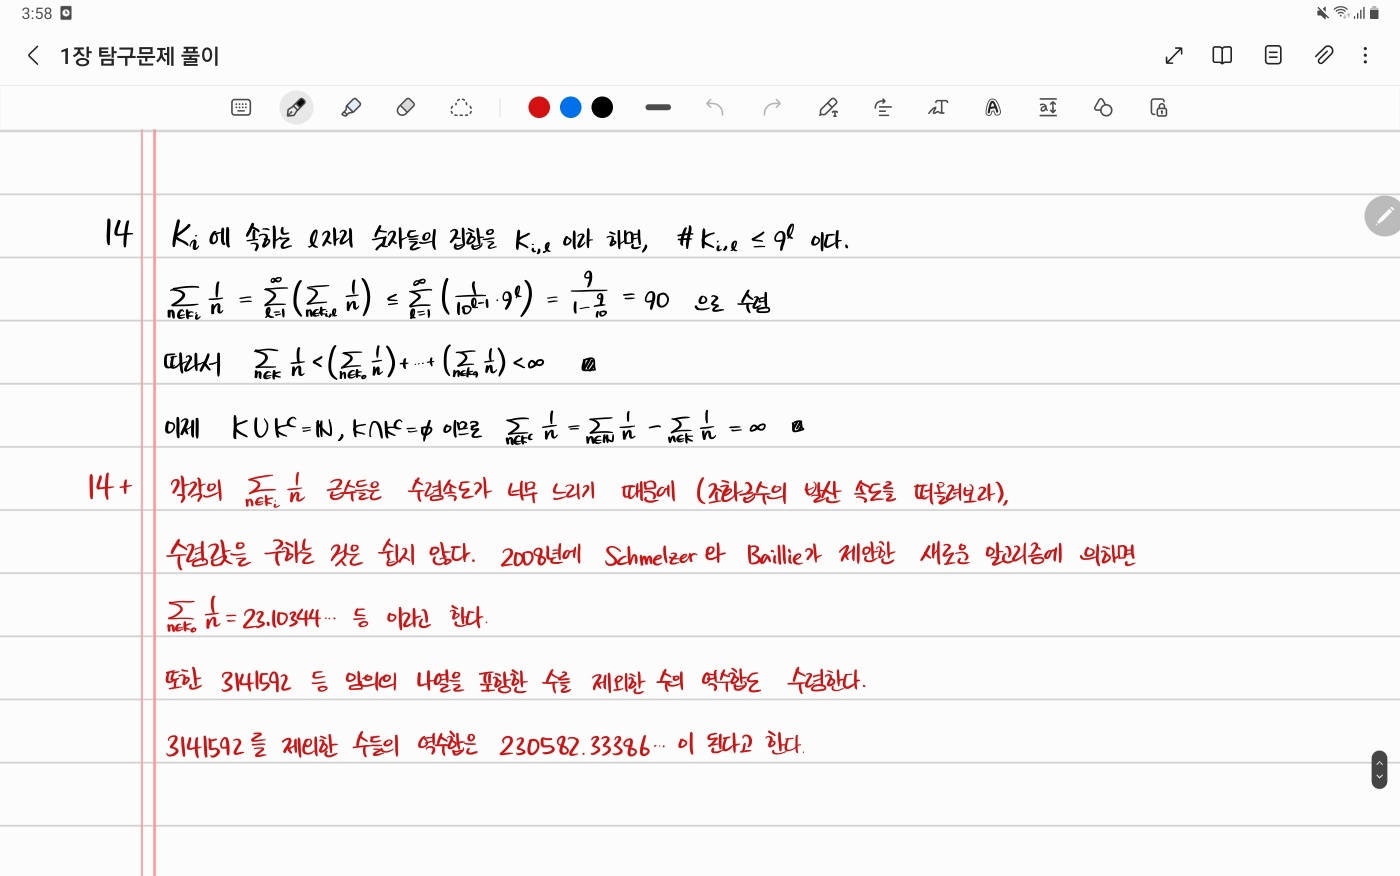 3:58
1장 탐구문제 풀이
14 K_i 에 속하는 l자리 숫자들의 집합을 K_{i,l} 이라 하면, #K_{i,l} ≤ 9^l 이다.
∑_{n∈K_i} 1/n = ∑_{l=1}^{∞} (∑_{n∈K_{i,l}} 1/n) ≤ ∑_{l=1}^{∞} (1/10^{l-1} · 9^l) = 9/(1-9/10) = 90 으로 수렴
따라서 ∑_{n∈K} 1/n < (∑_{n∈K_0} 1/n) + ⋯ + (∑_{n∈K_9} 1/n) < ∞
이제 K ∪ K^c = ℕ, K ∩ K^c = ∅ 이므로 ∑_{n∈K^c} 1/n = ∑_{n∈ℕ} 1/n - ∑_{n∈K} 1/n = ∞
14+ 각각의 ∑_{n∈K_i} 1/n 급수들은 수렴속도가 너무 느리기 때문에 (조화급수의 발산 속도를 떠올려보라),
수렴값을 구하는 것은 쉽지 않다. 2008년에 Schmelzer 와 Baillie가 제안한 새로운 알고리즘에 의하면
∑_{n∈K_0} 1/n = 23.10344⋯ 등 이라고 한다.
또한 3141592 등 임의의 나열을 포함한 수를 제외한 수의 역수합도 수렴한다.
3141592를 제외한 수들의 역수합은 230582.33386⋯ 이 된다고 한다.